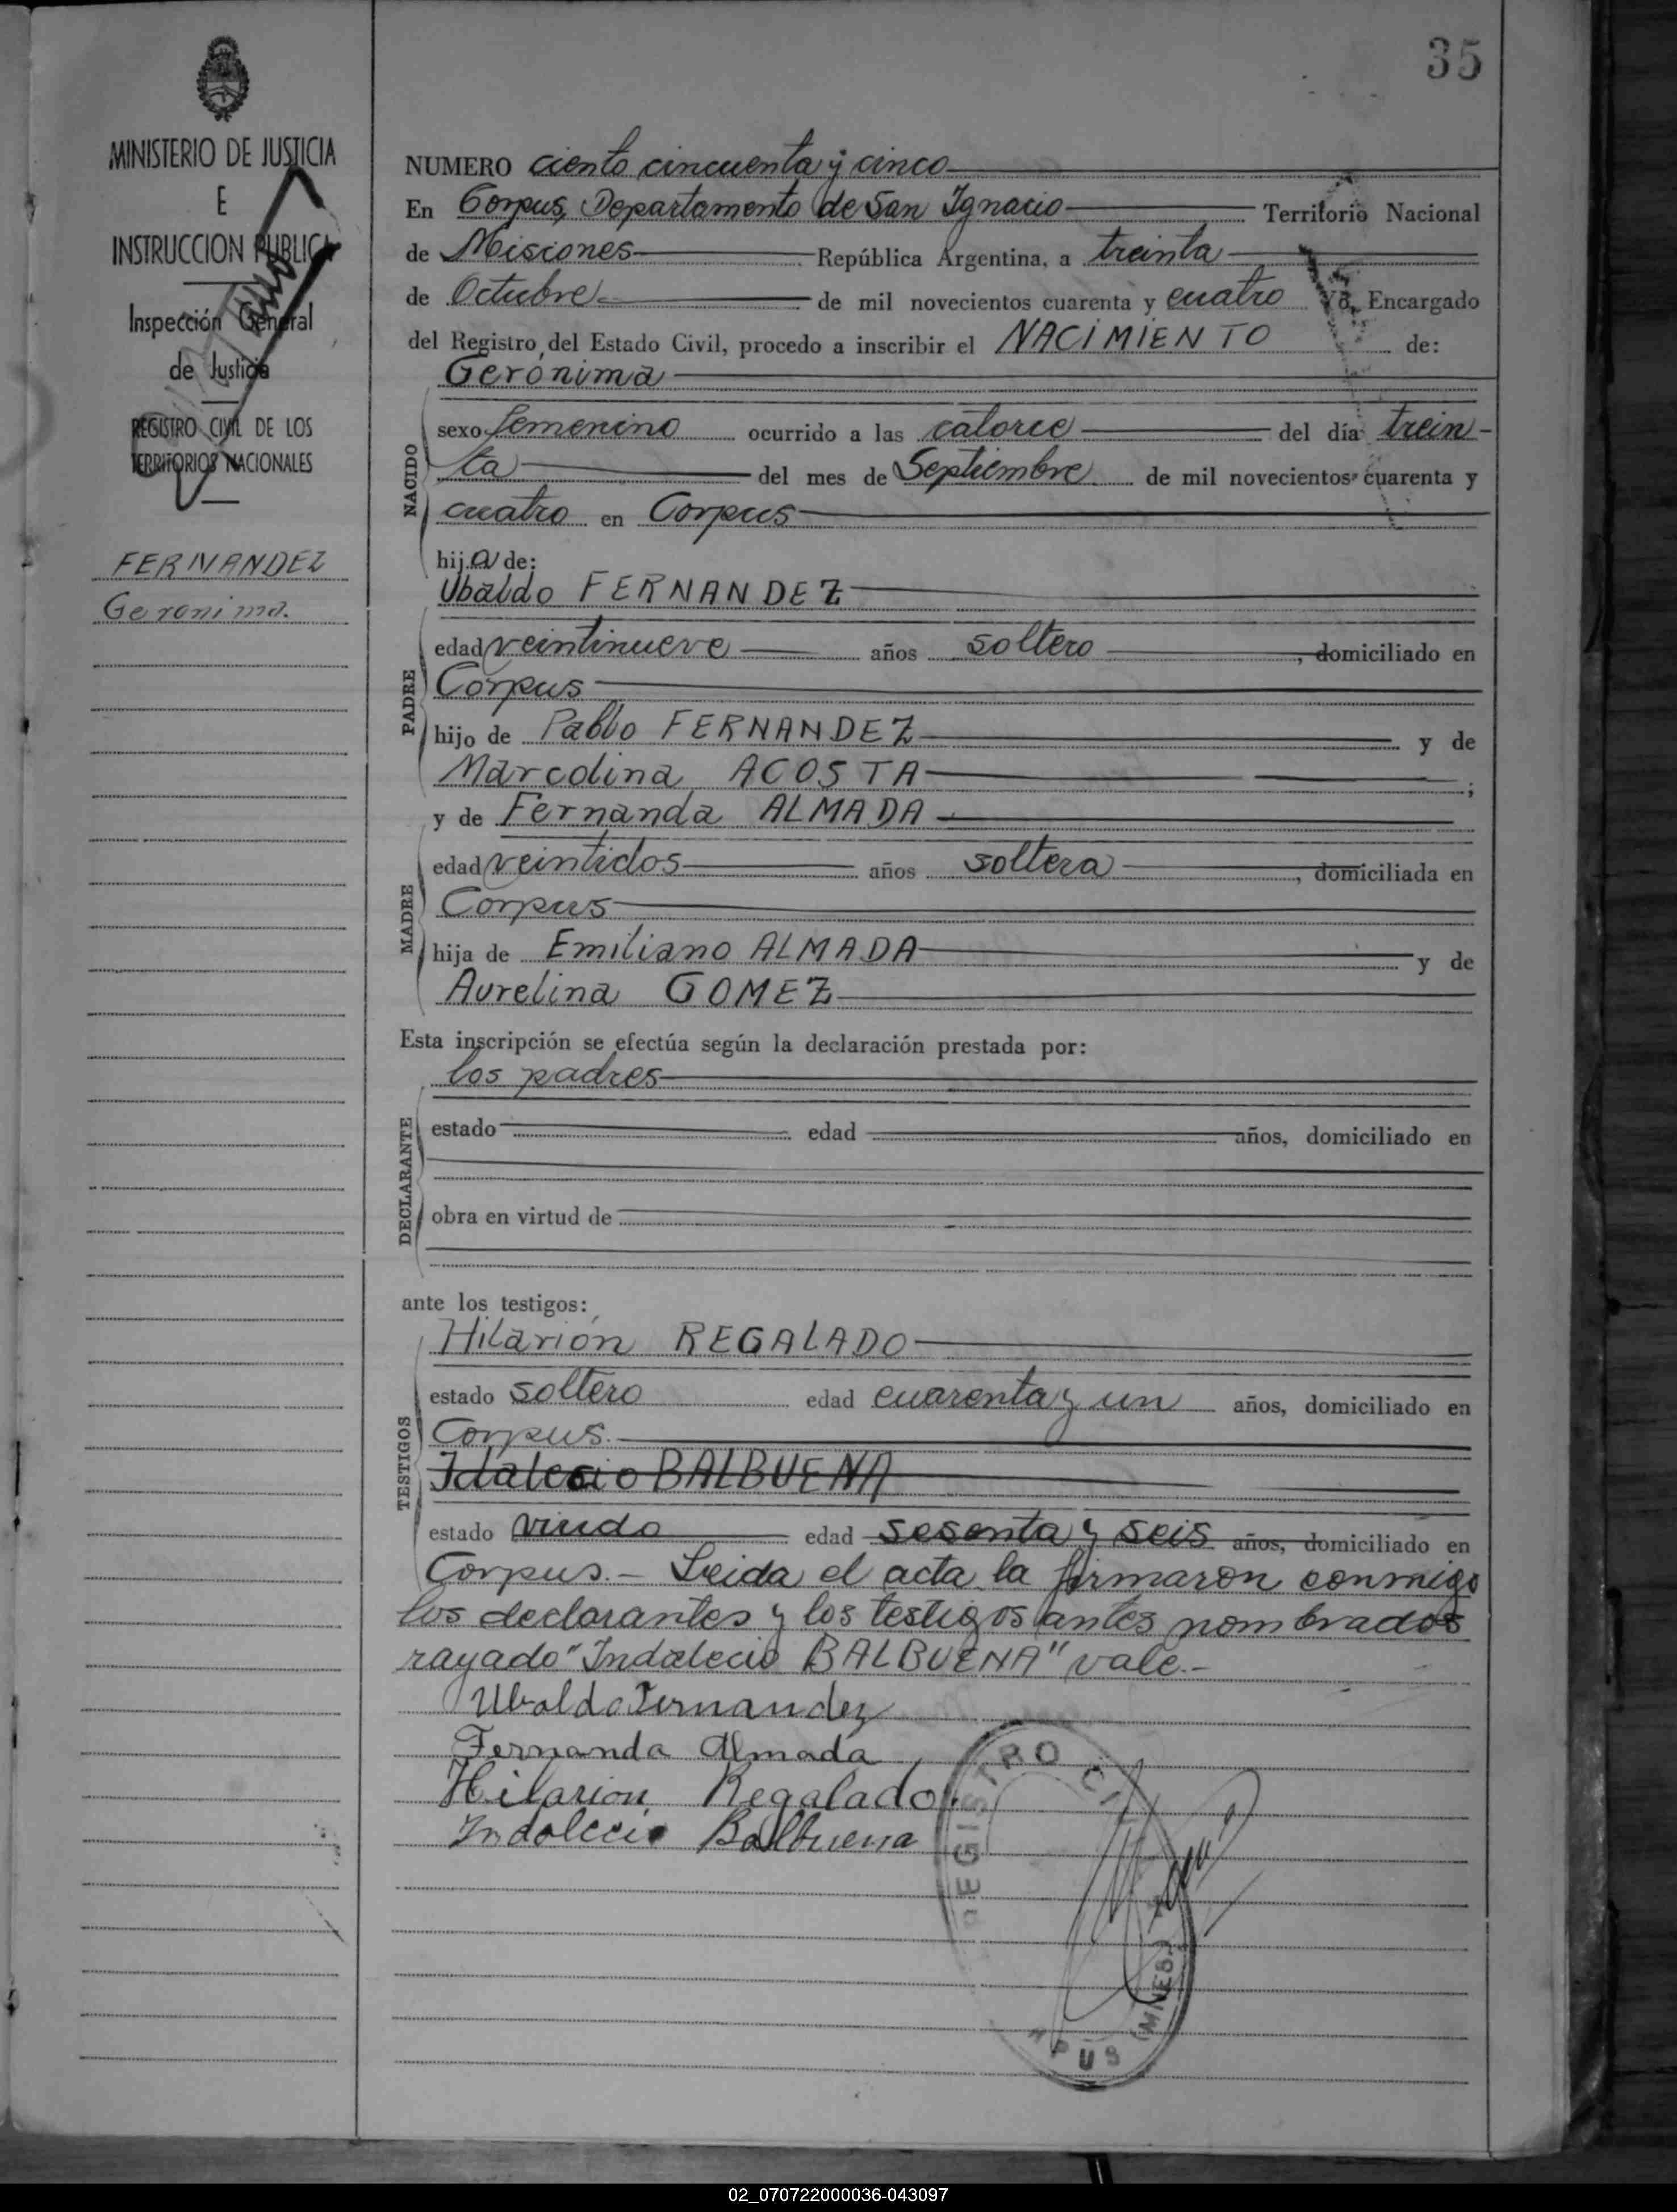 35
MINISTERIO DE JUSTICIA
E
INSTRUCCION PUBLICA
Inspección General
de Justicia
REGISTRO CIVIL DE LOS
TERRITORIOS NACIONALES
FERNANDEZ
Geronima.
NUMERO ciento cincuenta y cinco
En Corpus, Departamento de San Ignacio Territorio Nacional
de Misiones República Argentina, a treinta
de Octubre de mil novecientos cuarenta y cuatro Yo, Encargado
del Registro del Estado Civil, procedo a inscribir el NACIMIENTO de:
Gerónima
NACIDO
sexo femenino ocurrido a las catorce del día trein-
ta del mes de Septiembre de mil novecientos cuarenta y
cuatro en Corpus
hija de:
Ubaldo FERNANDEZ
PADRE
edad veintinueve años soltero, domiciliado en
Corpus
hijo de Pablo FERNANDEZ y de
Marcolina ACOSTA;
y de Fernanda ALMADA
MADRE
edad veintidos años soltera, domiciliada en
Corpus
hija de Emiliano ALMADA y de
Aurelina GOMEZ
Esta inscripción se efectúa según la declaración prestada por:
los padres
DECLARANTE
estado edad años, domiciliado en
obra en virtud de
ante los testigos:
TESTIGOS
Hilarión REGALADO
estado soltero edad cuarenta y un años, domiciliado en
Corpus.
Idalecio BALBUENA
estado viudo edad sesenta y seis años, domiciliado en
Corpus.- Leida el acta la firmaron conmigo
los declarantes y los testigos antes nombrados
rayado "Indalecio BALBUENA" vale.-
Ubaldo Fernandez
Fernanda Almada
Hilarion Regalado.
Indalecio Balbuena
REGISTRO CI
PUS (MNES)
02_070722000036-043097